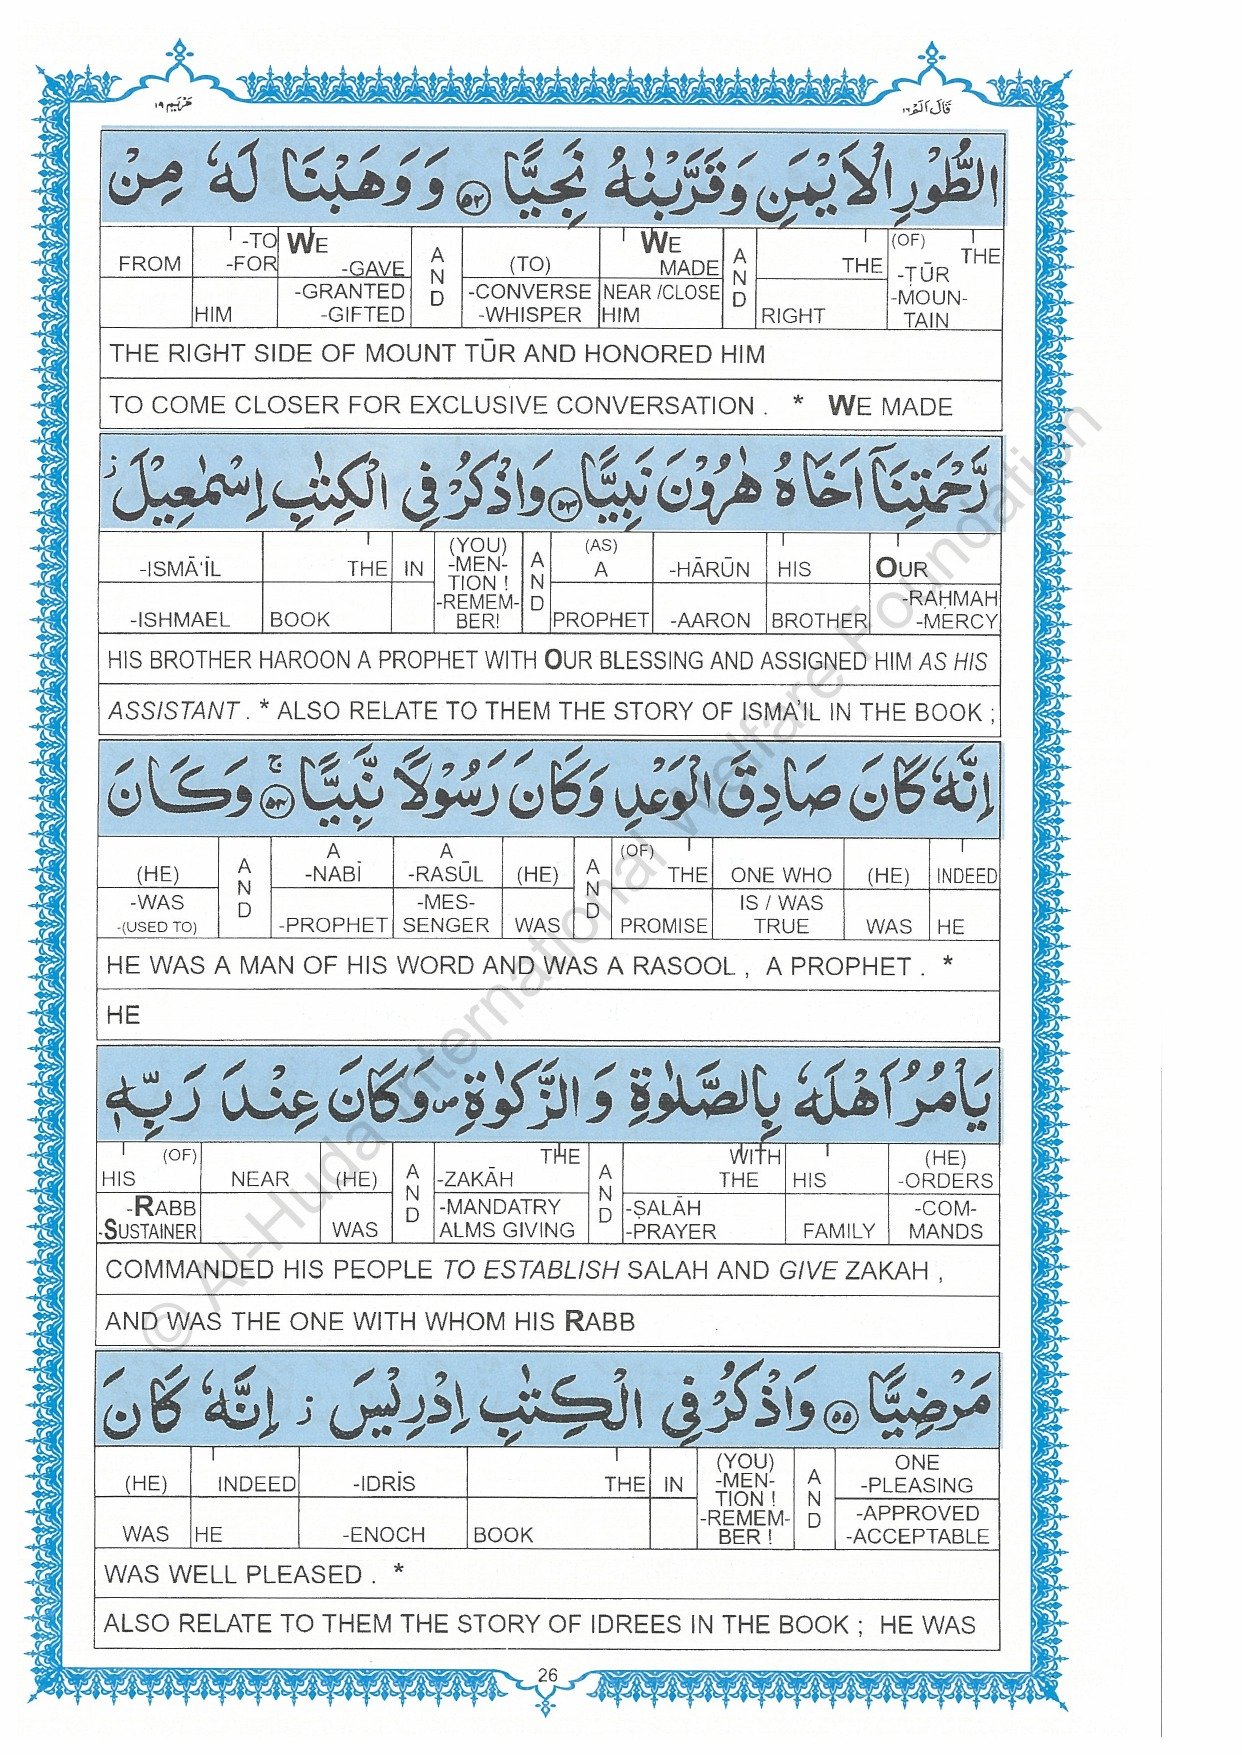 مَرْيَم ١٩
قَالَ اَلَمْ ١٦
الطُّوْرِ الْاَيْمَنِ وَقَرَّبْنٰهُ نَجِيًّا ﴿۵۲﴾ وَوَهَبْنَا لَهٗ مِنْ
FROM -TO -FOR HIM WE -GAVE -GRANTED -GIFTED AND (TO) -CONVERSE -WHISPER WE MADE NEAR /CLOSE HIM AND THE RIGHT (OF) THE -ṬŪR -MOUN- TAIN
THE RIGHT SIDE OF MOUNT TŪR AND HONORED HIM
TO COME CLOSER FOR EXCLUSIVE CONVERSATION . * WE MADE
رَّحْمَتِنَاۤ اَخَاهُ هٰرُوْنَ نَبِيًّا ﴿۵۳﴾ وَاذْكُرْ فِي الْكِتٰبِ اِسْمٰعِيْلَ ز
-ISMĀ'ĪL -ISHMAEL THE BOOK IN (YOU) -MEN- TION ! -REMEM- BER! AND (AS) A PROPHET -HĀRŪN -AARON HIS BROTHER OUR -RAḤMAH -MERCY
HIS BROTHER HAROON A PROPHET WITH OUR BLESSING AND ASSIGNED HIM AS HIS
ASSISTANT . * ALSO RELATE TO THEM THE STORY OF ISMA'IL IN THE BOOK ;
اِنَّهٗ كَانَ صَادِقَ الْوَعْدِ وَكَانَ رَسُوْلًا نَّبِيًّا ج ﴿۵۴﴾ وَكَانَ
(HE) -WAS -(USED TO) AND A -NABĪ -PROPHET A -RASŪL -MES- SENGER (HE) WAS AND (OF) THE PROMISE ONE WHO IS / WAS TRUE (HE) WAS INDEED HE
HE WAS A MAN OF HIS WORD AND WAS A RASOOL , A PROPHET . *
HE
يَاْمُرُ اَهْلَهٗ بِالصَّلٰوةِ وَالزَّكٰوةِ ص وَكَانَ عِنْدَ رَبِّهٖ
HIS (OF) -RABB -SUSTAINER NEAR (HE) WAS AND THE -ZAKĀH -MANDATRY ALMS GIVING AND WITH THE -ṢALĀH -PRAYER HIS FAMILY (HE) -ORDERS -COM- MANDS
COMMANDED HIS PEOPLE TO ESTABLISH SALAH AND GIVE ZAKAH ,
AND WAS THE ONE WITH WHOM HIS RABB
مَرْضِيًّا ﴿۵۵﴾ وَاذْكُرْ فِي الْكِتٰبِ اِدْرِيْسَ ز اِنَّهٗ كَانَ
(HE) WAS INDEED HE -IDRĪS -ENOCH THE BOOK IN (YOU) -MEN- TION ! -REMEM- BER ! AND ONE -PLEASING -APPROVED -ACCEPTABLE
WAS WELL PLEASED . *
ALSO RELATE TO THEM THE STORY OF IDREES IN THE BOOK ; HE WAS
26
© Al-Huda International Welfare Foundation